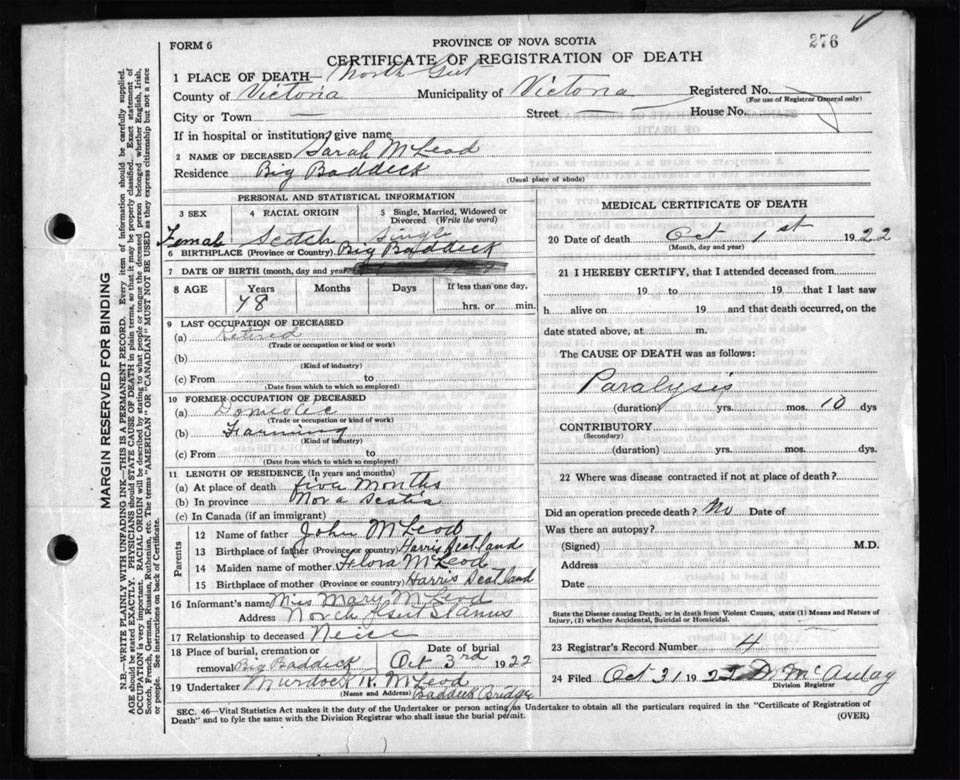 276
FORM 6
PROVINCE OF NOVA SCOTIA
CERTIFICATE OF REGISTRATION OF DEATH
1 PLACE OF DEATH— North Gut
County of Victoria Municipality of Victoria Registered No.
(For use of Registrar General only)
City or Town — Street — House No.
If in hospital or institution, give name
2 NAME OF DECEASED Sarah McLeod
Residence Big Baddeck
(Usual place of abode)
PERSONAL AND STATISTICAL INFORMATION
3 SEX 4 RACIAL ORIGIN 5 Single, Married, Widowed or Divorced (Write the word)
Female Scotch Single
6 BIRTHPLACE (Province or Country) Big Baddeck
7 DATE OF BIRTH (month, day and year)
8 AGE Years Months Days If less than one day,
78 hrs. or min.
9 LAST OCCUPATION OF DECEASED
(a) Retired
(Trade or occupation or kind or work)
(b)
(Kind of industry)
(c) From to
(Date from which to which so employed)
10 FORMER OCCUPATION OF DECEASED
(a) Domestic
(Trade or occupation or kind of work)
(b) Farming
(Kind of industry)
(c) From to
(Date from which to which so employed)
11 LENGTH OF RESIDENCE (In years and months)
(a) At place of death five months
(b) In province Nova Scotia
(c) In Canada (if an immigrant)
Parents
12 Name of father John McLeod
13 Birthplace of father (Province or country) Harris Scotland
14 Maiden name of mother Flora McLeod
15 Birthplace of mother (Province or country) Harris Scotland
16 Informant's name Miss Mary McLeod
Address North Gut St Anns
17 Relationship to deceased Neice
18 Place of burial, cremation or removal Big Baddeck Date of burial Oct 3rd 1922
19 Undertaker Murdock K. McLeod
(Name and Address) Baddeck Bridge
MEDICAL CERTIFICATE OF DEATH
20 Date of death Oct 1st 1922
(Month, day and year)
21 I HEREBY CERTIFY, that I attended deceased from
19 to 19 that I last saw
h alive on 19 and that death occurred, on
date stated above, at m.
The CAUSE OF DEATH was as follows:
Paralysis
(duration) yrs. mos. 10 dys
CONTRIBUTORY
(Secondary)
(duration) yrs. mos. dys.
22 Where was disease contracted if not at place of death?
Did an operation precede death? No Date of
Was there an autopsy?
(Signed) M.D.
Address
Date
State the Disease causing Death, or in death from Violent Causes, state (1) Means and Nature of
Injury, (2) whether Accidental, Suicidal or Homicidal.
23 Registrar's Record Number 4
24 Filed Oct 31 192 D. McAulay
Division Registrar
SEC. 46—Vital Statistics Act makes it the duty of the Undertaker or person acting as Undertaker to obtain all the particulars required in the "Certificate of Registration of
Death" and to fyle the same with the Division Registrar who shall issue the burial permit. (OVER)
MARGIN RESERVED FOR BINDING
N.B.—WRITE PLAINLY WITH UNFADING INK—THIS IS A PERMANENT RECORD. Every item of information should be carefully supplied.
AGE should be stated EXACTLY. PHYSICIANS should STATE CAUSE OF DEATH in plain terms, so that it may be properly classified. Exact statement of
OCCUPATION is very important. RACIAL ORIGIN will be described by stating to what people or tongue the deceased person belonged whether English, Irish,
Scotch, French, German, Russian, Ruthenian, etc. The terms "AMERICAN" OR "CANADIAN" MUST NOT BE USED as they express citizenship but not a race
or people. See instructions on back of Certificate.